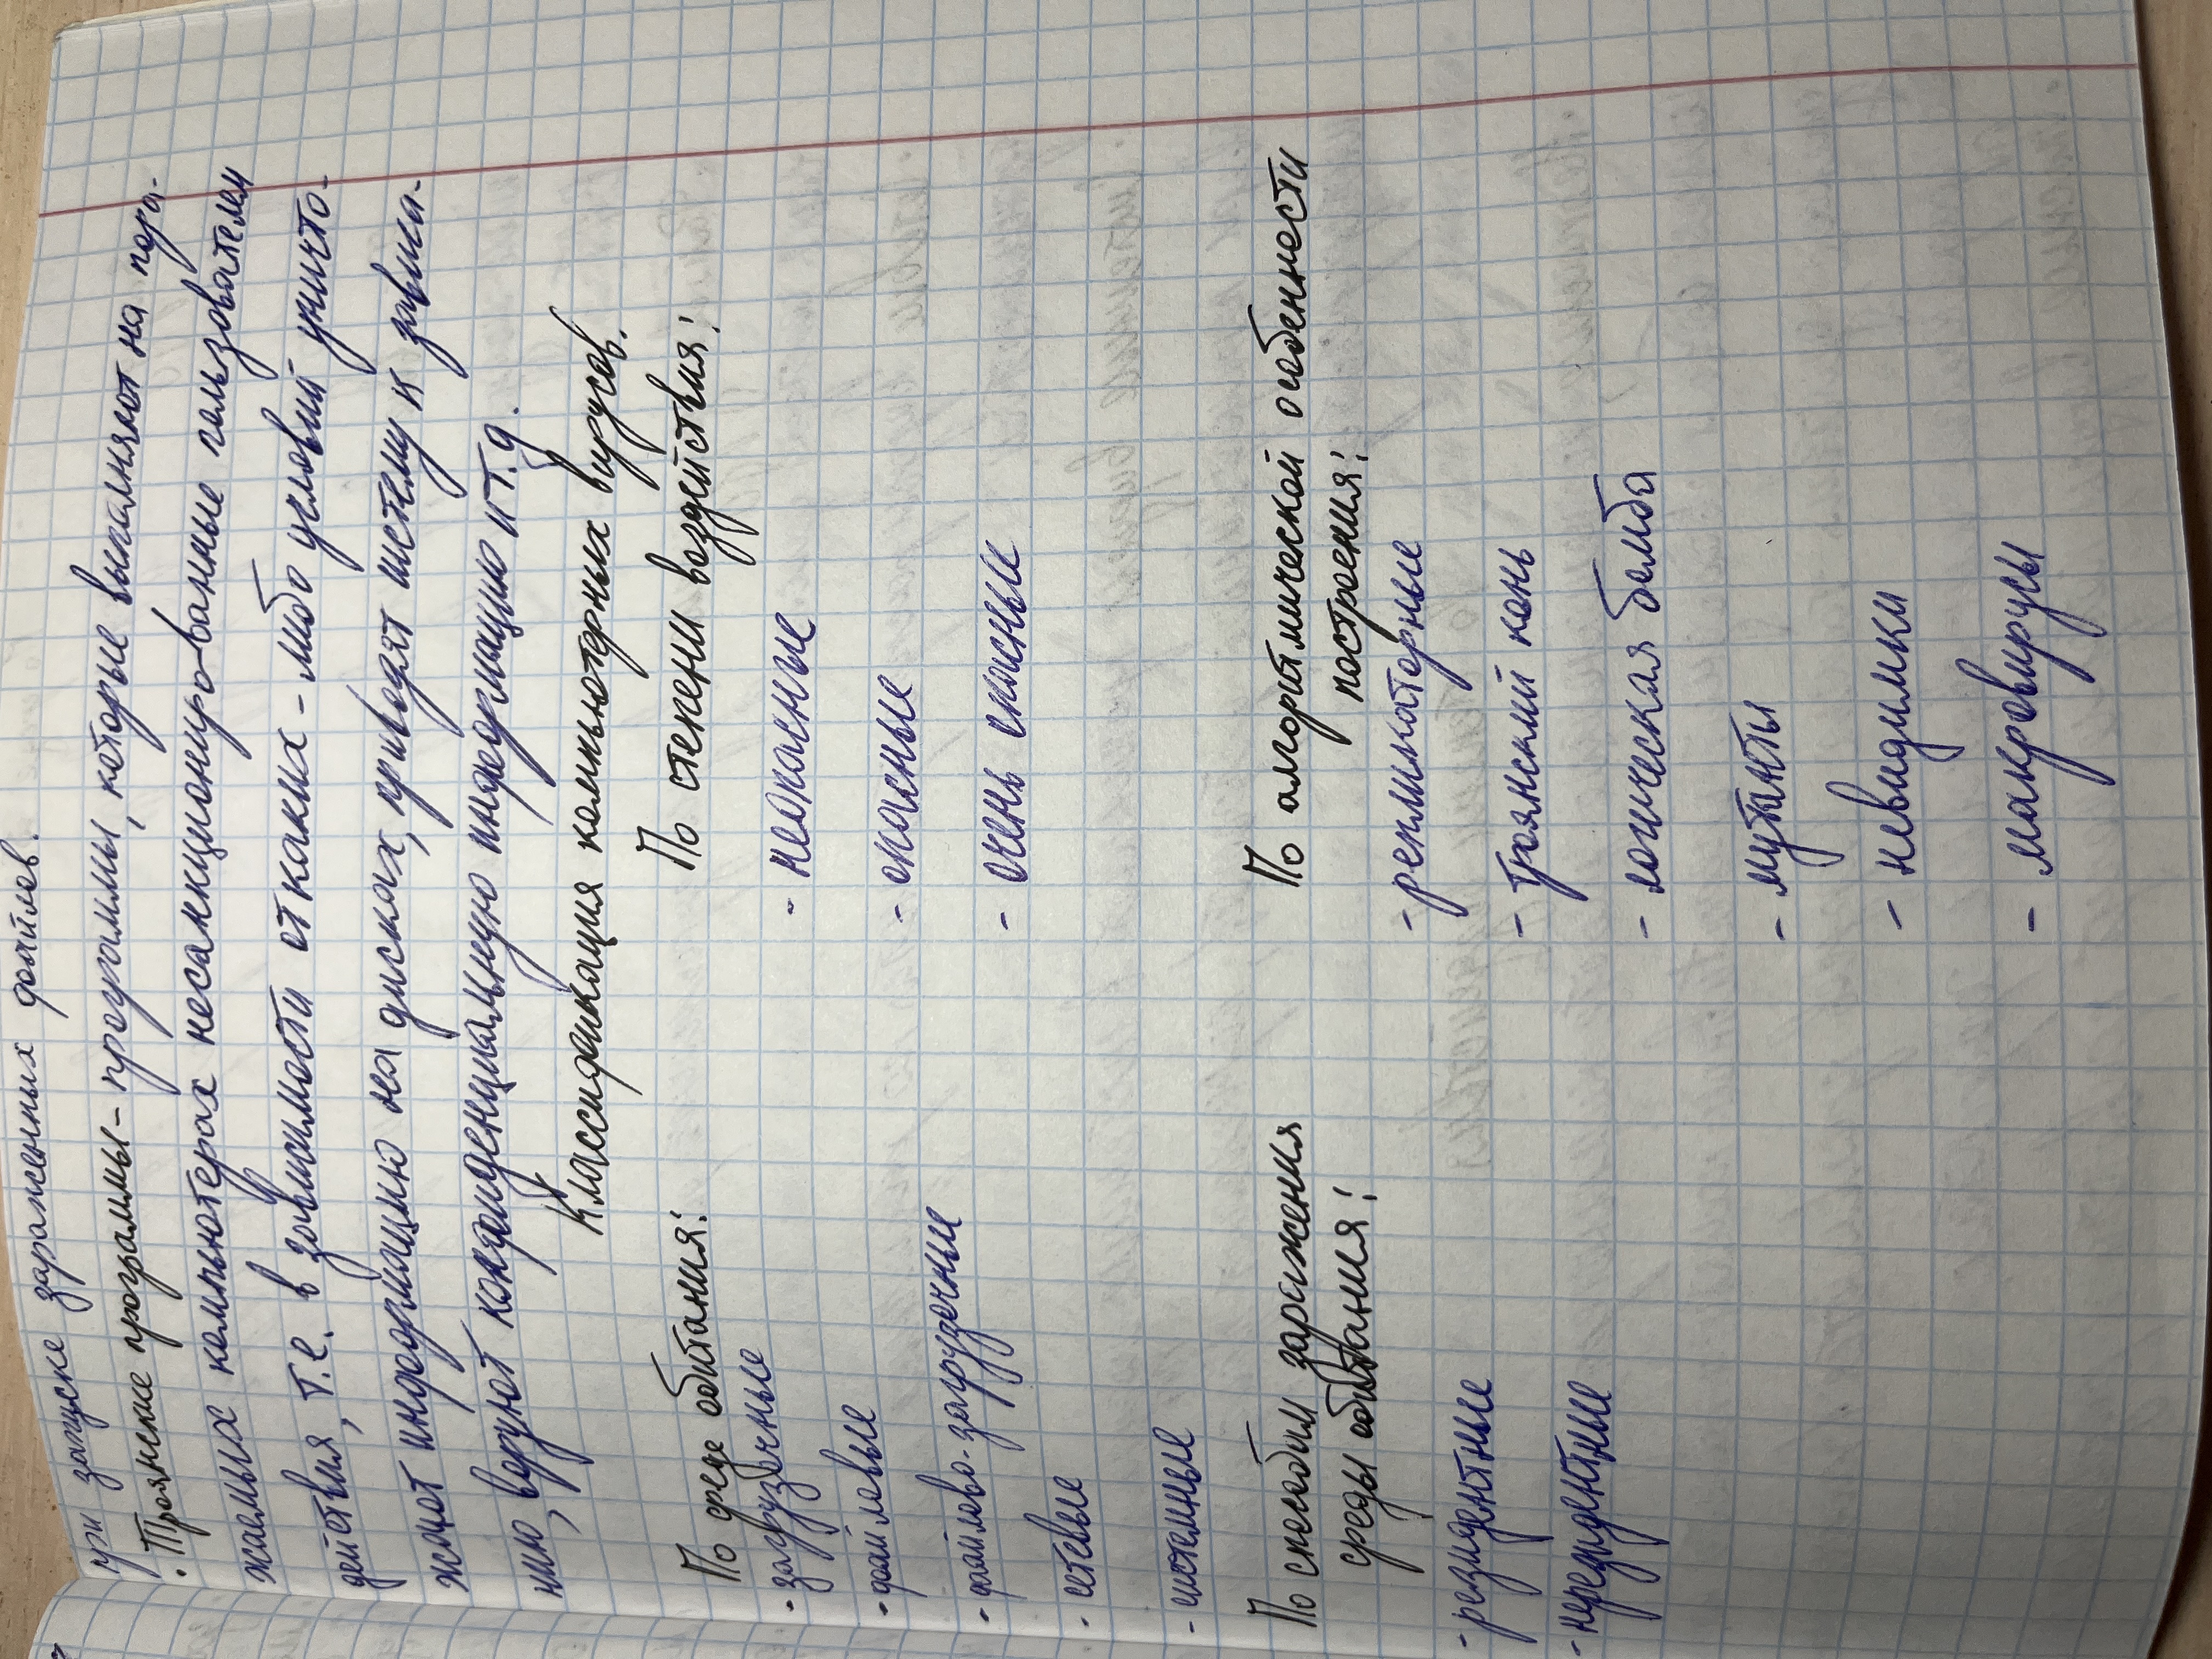 при запуске зараженных файлов.
· Троянские программы - программы, которые выполняют на пора-
жаемых компьютерах несанкциониро-ванные пользователем
действия, т.е. в зависимости от каких-либо условий уничто-
жают информацию на дисках, приводят систему к зависа-
нию, воруют конфиденциальную информацию и т.д.
Классификация компьютерных вирусов.
По среде обитания:
- загрузочные
- файловые
- файлово-загрузочные
- сетевые
- системные
По степени воздействия:
- неопасные
- опасные
- очень опасные
По способам заражения
среды обитания:
- резидентные
- нерезидентные
По алгоритмической особенности
построения:
- репликаторные
- троянский конь
- логическая бомба
- мутанты
- невидимки
- макровирусы